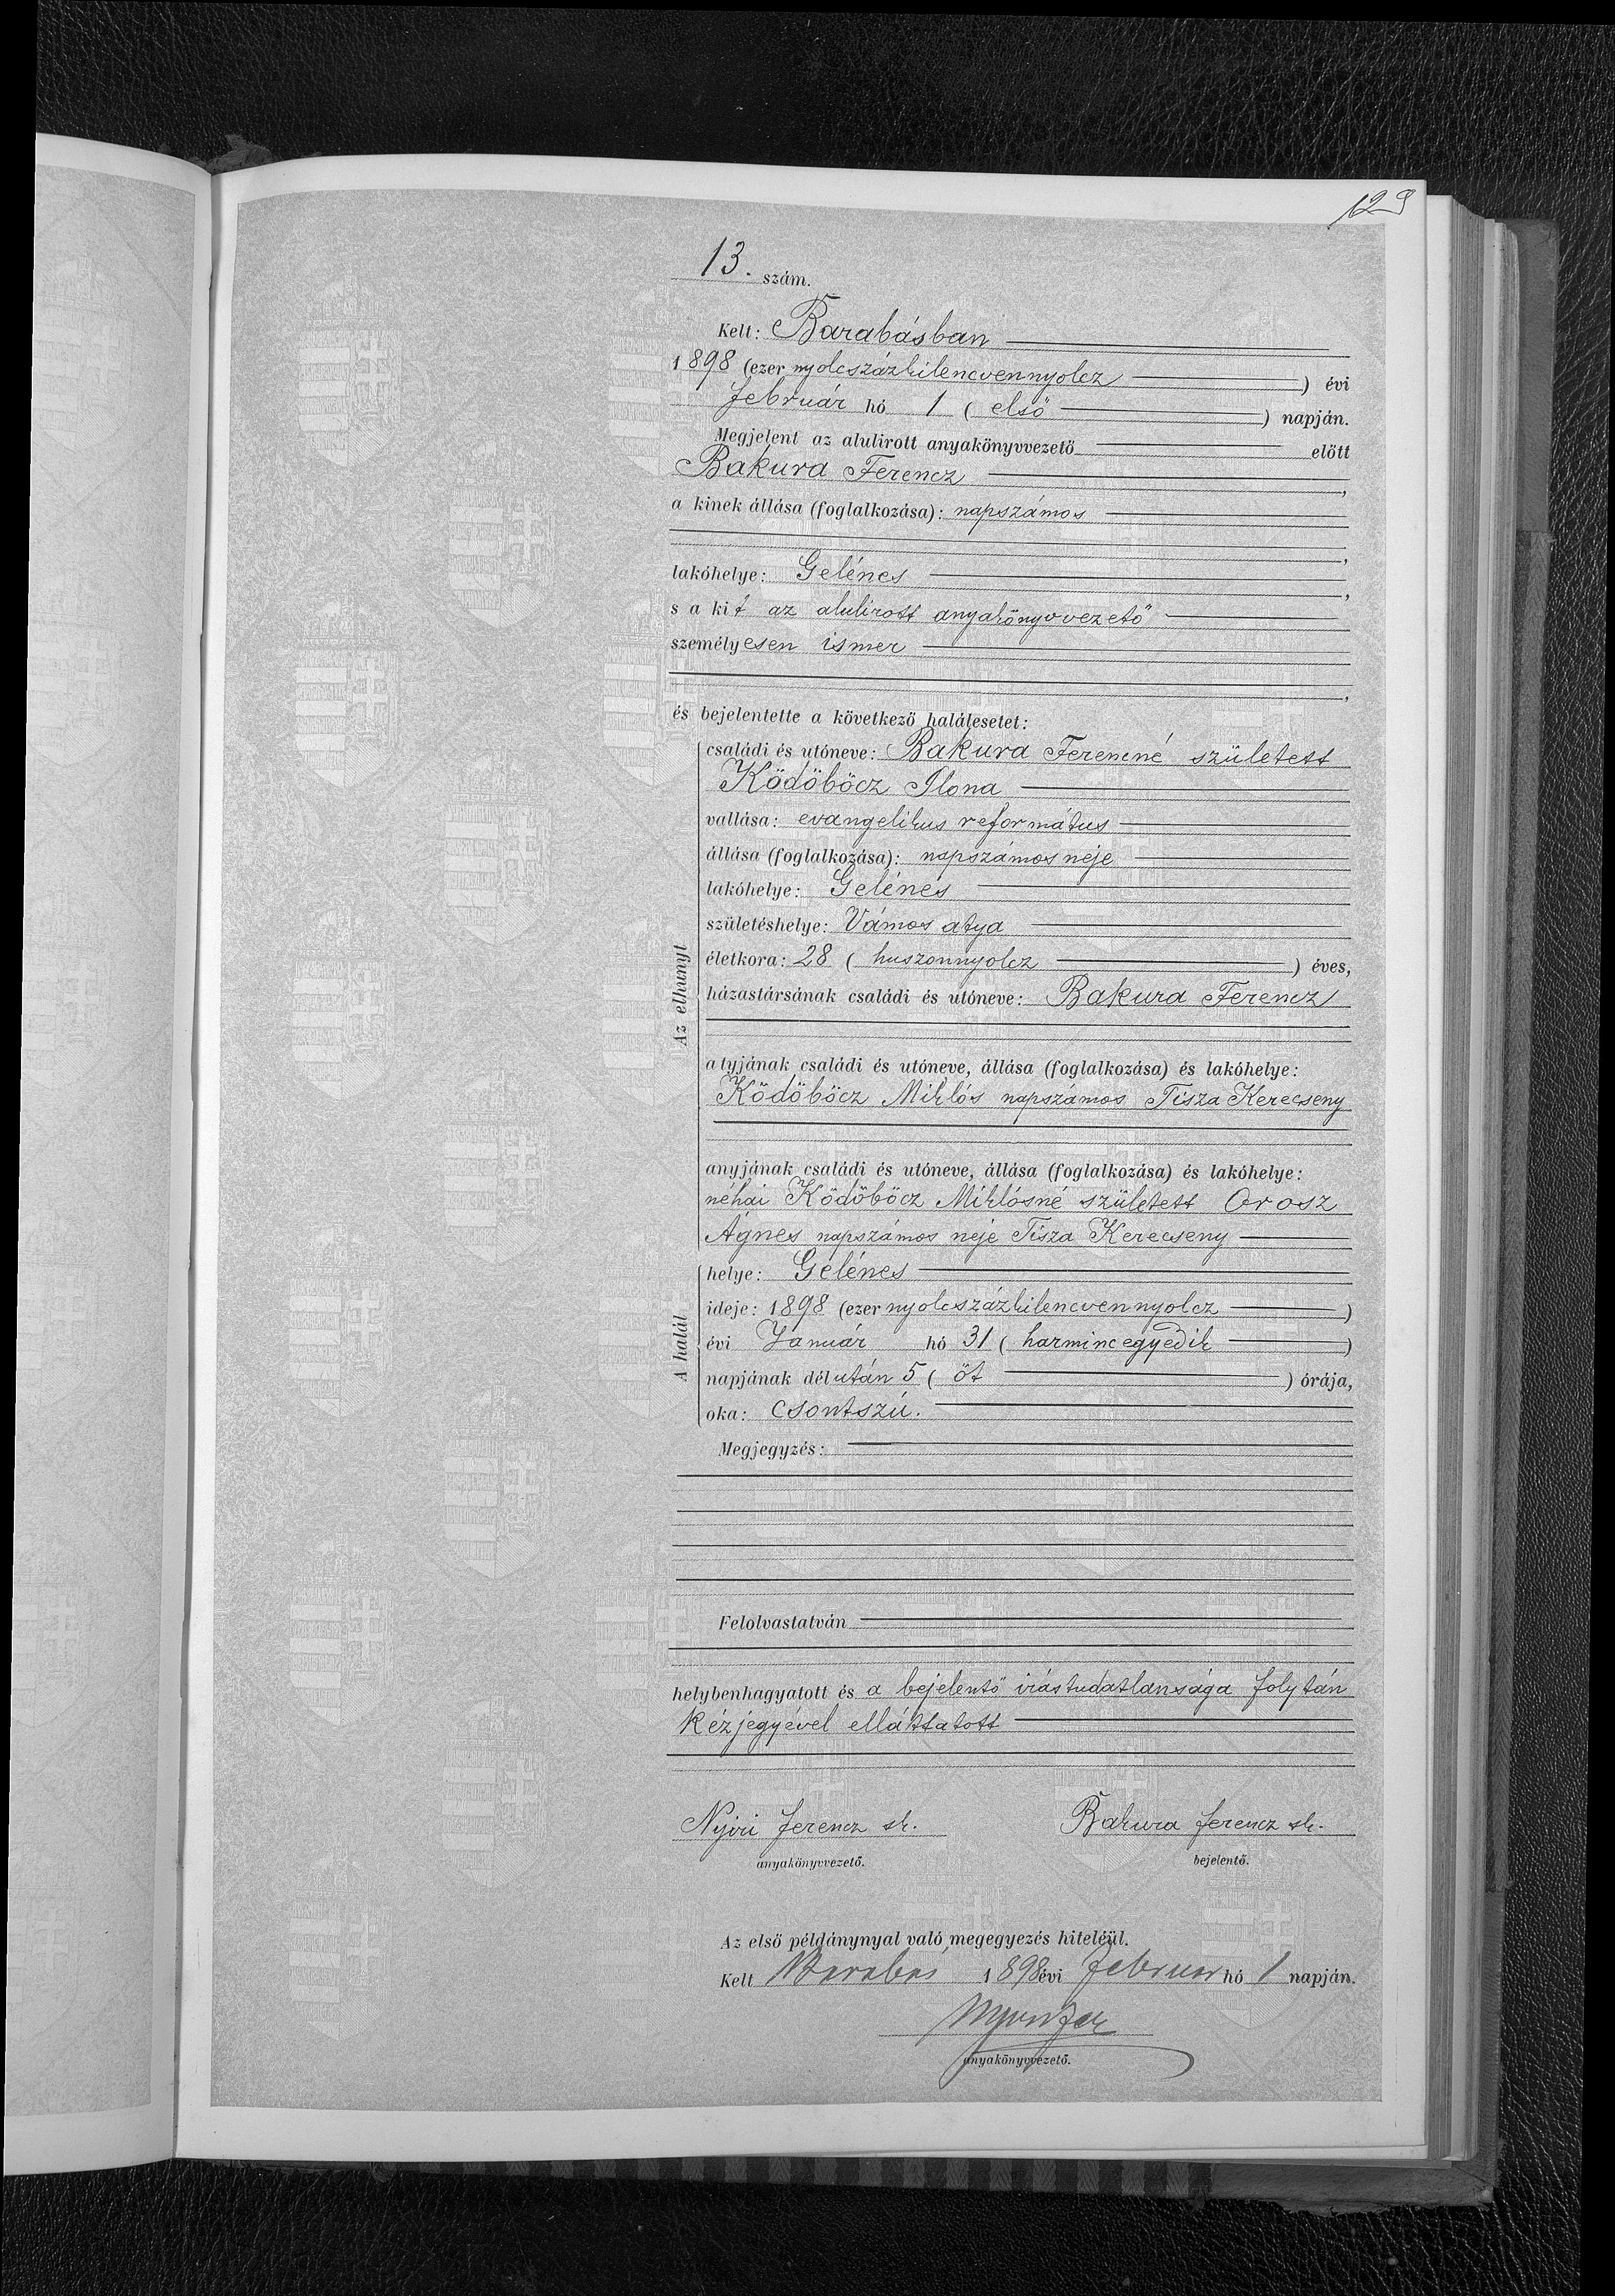 129
13. szám.
Kelt: Barabásban
1898 (ezer nyolcszázkilencvennyolcz) évi
február hó 1 (első) napján.
Megjelent az alulirott anyakönyvvezető előtt
Bakura Ferencz,
a kinek állása (foglalkozása): napszámos
,
lakóhelye: Gelénes,
s a kit az alulirott anyakönyvvezető
személyesen ismer
,
és bejelentette a következő halálesetet:
Az elhunyt
családi és utóneve: Bakura Ferencné született
Ködöböcz Ilona
vallása: evangelikus református
állása (foglalkozása): napszámos neje
lakóhelye: Gelénes
születéshelye: Vámos atya
életkora: 28 (huszonnyolcz) éves,
házastársának családi és utóneve: Bakura Ferencz
atyjának családi és utóneve, állása (foglalkozása) és lakóhelye:
Ködöböcz Miklós napszámos Tisza Kerecseny
anyjának családi és utóneve, állása (foglalkozása) és lakóhelye:
néhai Ködöböcz Miklósné született Orosz
Ágnes napszámos neje Tisza Kerecseny
A halál
helye: Gelénes
ideje: 1898 (ezer nyolcszázkilencvennyolcz)
évi Január hó 31 (harmincegyedik)
napjának délután 5 (öt) órája,
oka: Csontszú.
Megjegyzés:
Felolvastatván
helybenhagyatott és a bejelentő irástudatlansága folytán
kézjegyével elláttatott
Nyiri Ferencz sk. Bakura Ferencz sk.
anyakönyvvezető. bejelentő.
Az első példánynyal való megegyezés hiteléül.
Kelt Barabás 1898 évi Február hó 1 napján.
anyakönyvvezető.